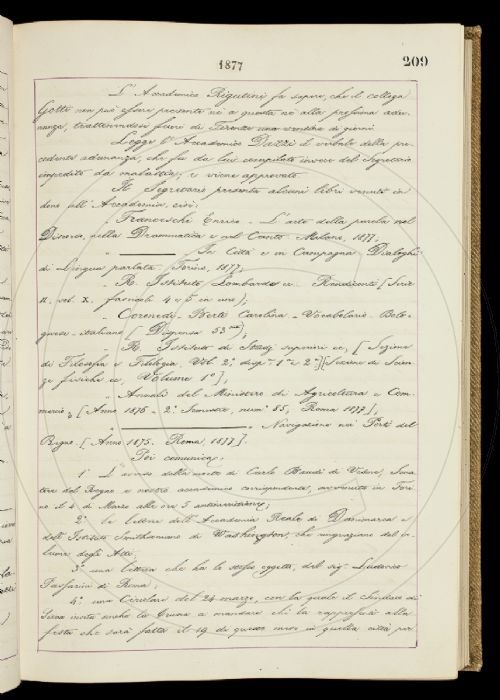 1877
209
L'Accademico Rigutini fa sapere, che il collega
Gotti non può essere presente nè a questa nè alla prossima adu-
nanza, trattenendosi fuori di Firenze una ventina di giorni.
Legge l'Accademico Dazzi il verbale della pre-
cedente adunanza, che fu da lui compilato invece del Segretario
impedito da malattia; e viene approvato.
Il Segretario presenta alcuni libri venuti in
dono all'Accademia, cioè:
Franceschi Enrico - L'arte della parola nel
Discorso, nella Drammatica e nel Canto. Milano, 1877.
" ——— In Città e in Campagna Dialoghi
di Lingua parlata (Torino, 1877;
" R. Istituto Lombardo ec. Rendiconti (Serie
II, vol. X, fascicoli 4 e 5 in uno);
" Coronedi-Berti Carolina - Vocabolario Bolo-
gnese-italiano (Dispensa 53);
" R. Istituto di Studj superiori ec. [Sezione
di Filosofia e Filologia, Vol. 2°, disp. 1ª e 2ª] [Sezione di Scien-
ze fisiche ec., Volume 1°];
" Annali del Ministero di Agricoltura e Com-
mercio, [Anno 1876 - 2° Semestre, num° 85, Roma 1877];
" ——— Navigazione nei Porti del
Regno. [Anno 1875. Roma, 1877].
Poi comunica:
1° L'avviso della morte di Carlo Baudi di Vesme, Sena-
tore del Regno e nostro accademico corrispondente, avvenuta in Tori-
no il 4 di Marzo alle ore 5 antimeridiane;
2° le lettere dell'Accademia Reale di Danimarca e
dell'Istituto Smithsoniano di Washington, che ringraziano dell'in-
luvio degli Atti;
3° una lettera che ha lo stesso oggetto, del sig. Ludovico
Passarini di Roma;
4° una Circolare del 24 marzo, con la quale il Sindaco di
Siena invita anche la Crusca a mandare chi la rappresenti alla
festa che sarà fatta il 19 di questo mese in quella città per